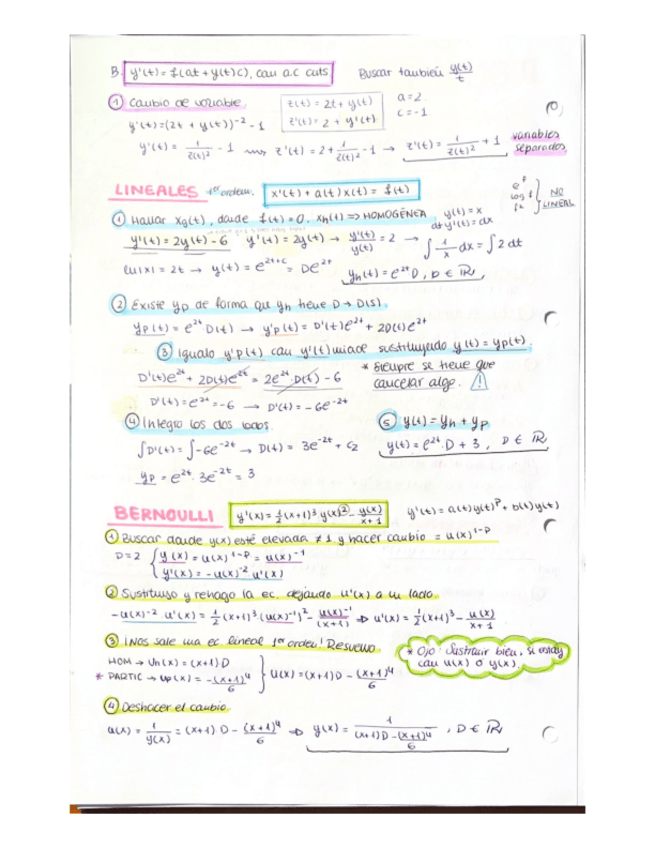 B. y'(t) = f(at + y(t)c), con a.c ctts Buscar también y(t)/t
① Cambio de variable. z(t) = 2t + y(t) a = 2
y'(t) = (2t + y(t))^-2 - 1 z'(t) = 2 + y'(t) c = -1
y'(t) = 1/z(t)^2 - 1 → z'(t) = 2 + 1/z(t)^2 - 1 → z'(t) = 1/z(t)^2 + 1 variables separadas
LINEALES 1er orden. x'(t) + a(t) x(t) = f(t) NO LINEAL
① Hallar xg(t), donde f(t) = 0. xh(t) => HOMOGÉNEA y(t) = x
y'(t) = 2y(t) - 6 y'(t) = 2y(t) → y'(t)/y(t) = 2 → ∫ 1/x dx = ∫ 2 dt
ln|x| = 2t → y(t) = e^2t+c = De^2t yh(t) = e^2t D, D ∈ ℝ
② Existe yp de forma que yh tiene D → D(t).
yp(t) = e^2t D(t) → y'p(t) = D'(t)e^2t + 2D(t)e^2t
③ Igualo y'p(t) con y'(t) sustituyendo y(t) = yp(t).
D'(t)e^2t + 2D(t)e^2t = 2e^2t·D(t) - 6 * Siempre se tiene que cancelar algo. ⚠
D'(t) = e^2t = -6 → D'(t) = -6e^-2t
④ Integro los dos lados. ⑤ y(t) = yh + yp
∫D'(t) = ∫-6e^-2t → D(t) = 3e^-2t + c2 y(t) = e^2t·D + 3, D ∈ ℝ
yp = e^2t · 3e^-2t = 3
BERNOULLI y'(x) = 1/2 (x+1)^3 y(x)^2 - y(x)/x+1 y'(t) = a(t)y(t)^p + b(t)y(t)
① Buscar donde y(x) esté elevada ≠ 1 y hacer cambio = u(x)^1-p
p = 2 { y(x) = u(x)^1-p = u(x)^-1
y'(x) = -u(x)^-2 · u'(x)
② Sustituyo y rehago la ec. dejando u'(x) a un lado.
-u(x)^-2 · u'(x) = 1/2 (x+1)^3 (u(x)^-1)^2 - u(x)^-1/(x+1) ⇒ u'(x) = 1/2 (x+1)^3 - u(x)/x+1
③ ¡Nos sale una ec. lineal 1er orden! Resuelvo * Ojo: Sustituir bien, si estoy con u(x) o y(x).
HOM → uh(x) = (x+1)D
* PARTIC → up(x) = -(x+1)^4/6 } u(x) = (x+1)D - (x+1)^4/6
④ Deshacer el cambio.
u(x) = 1/y(x) = (x+1)D - (x+1)^4/6 ⇒ y(x) = 1/((x+1)D - (x+1)^4/6), D ∈ ℝ